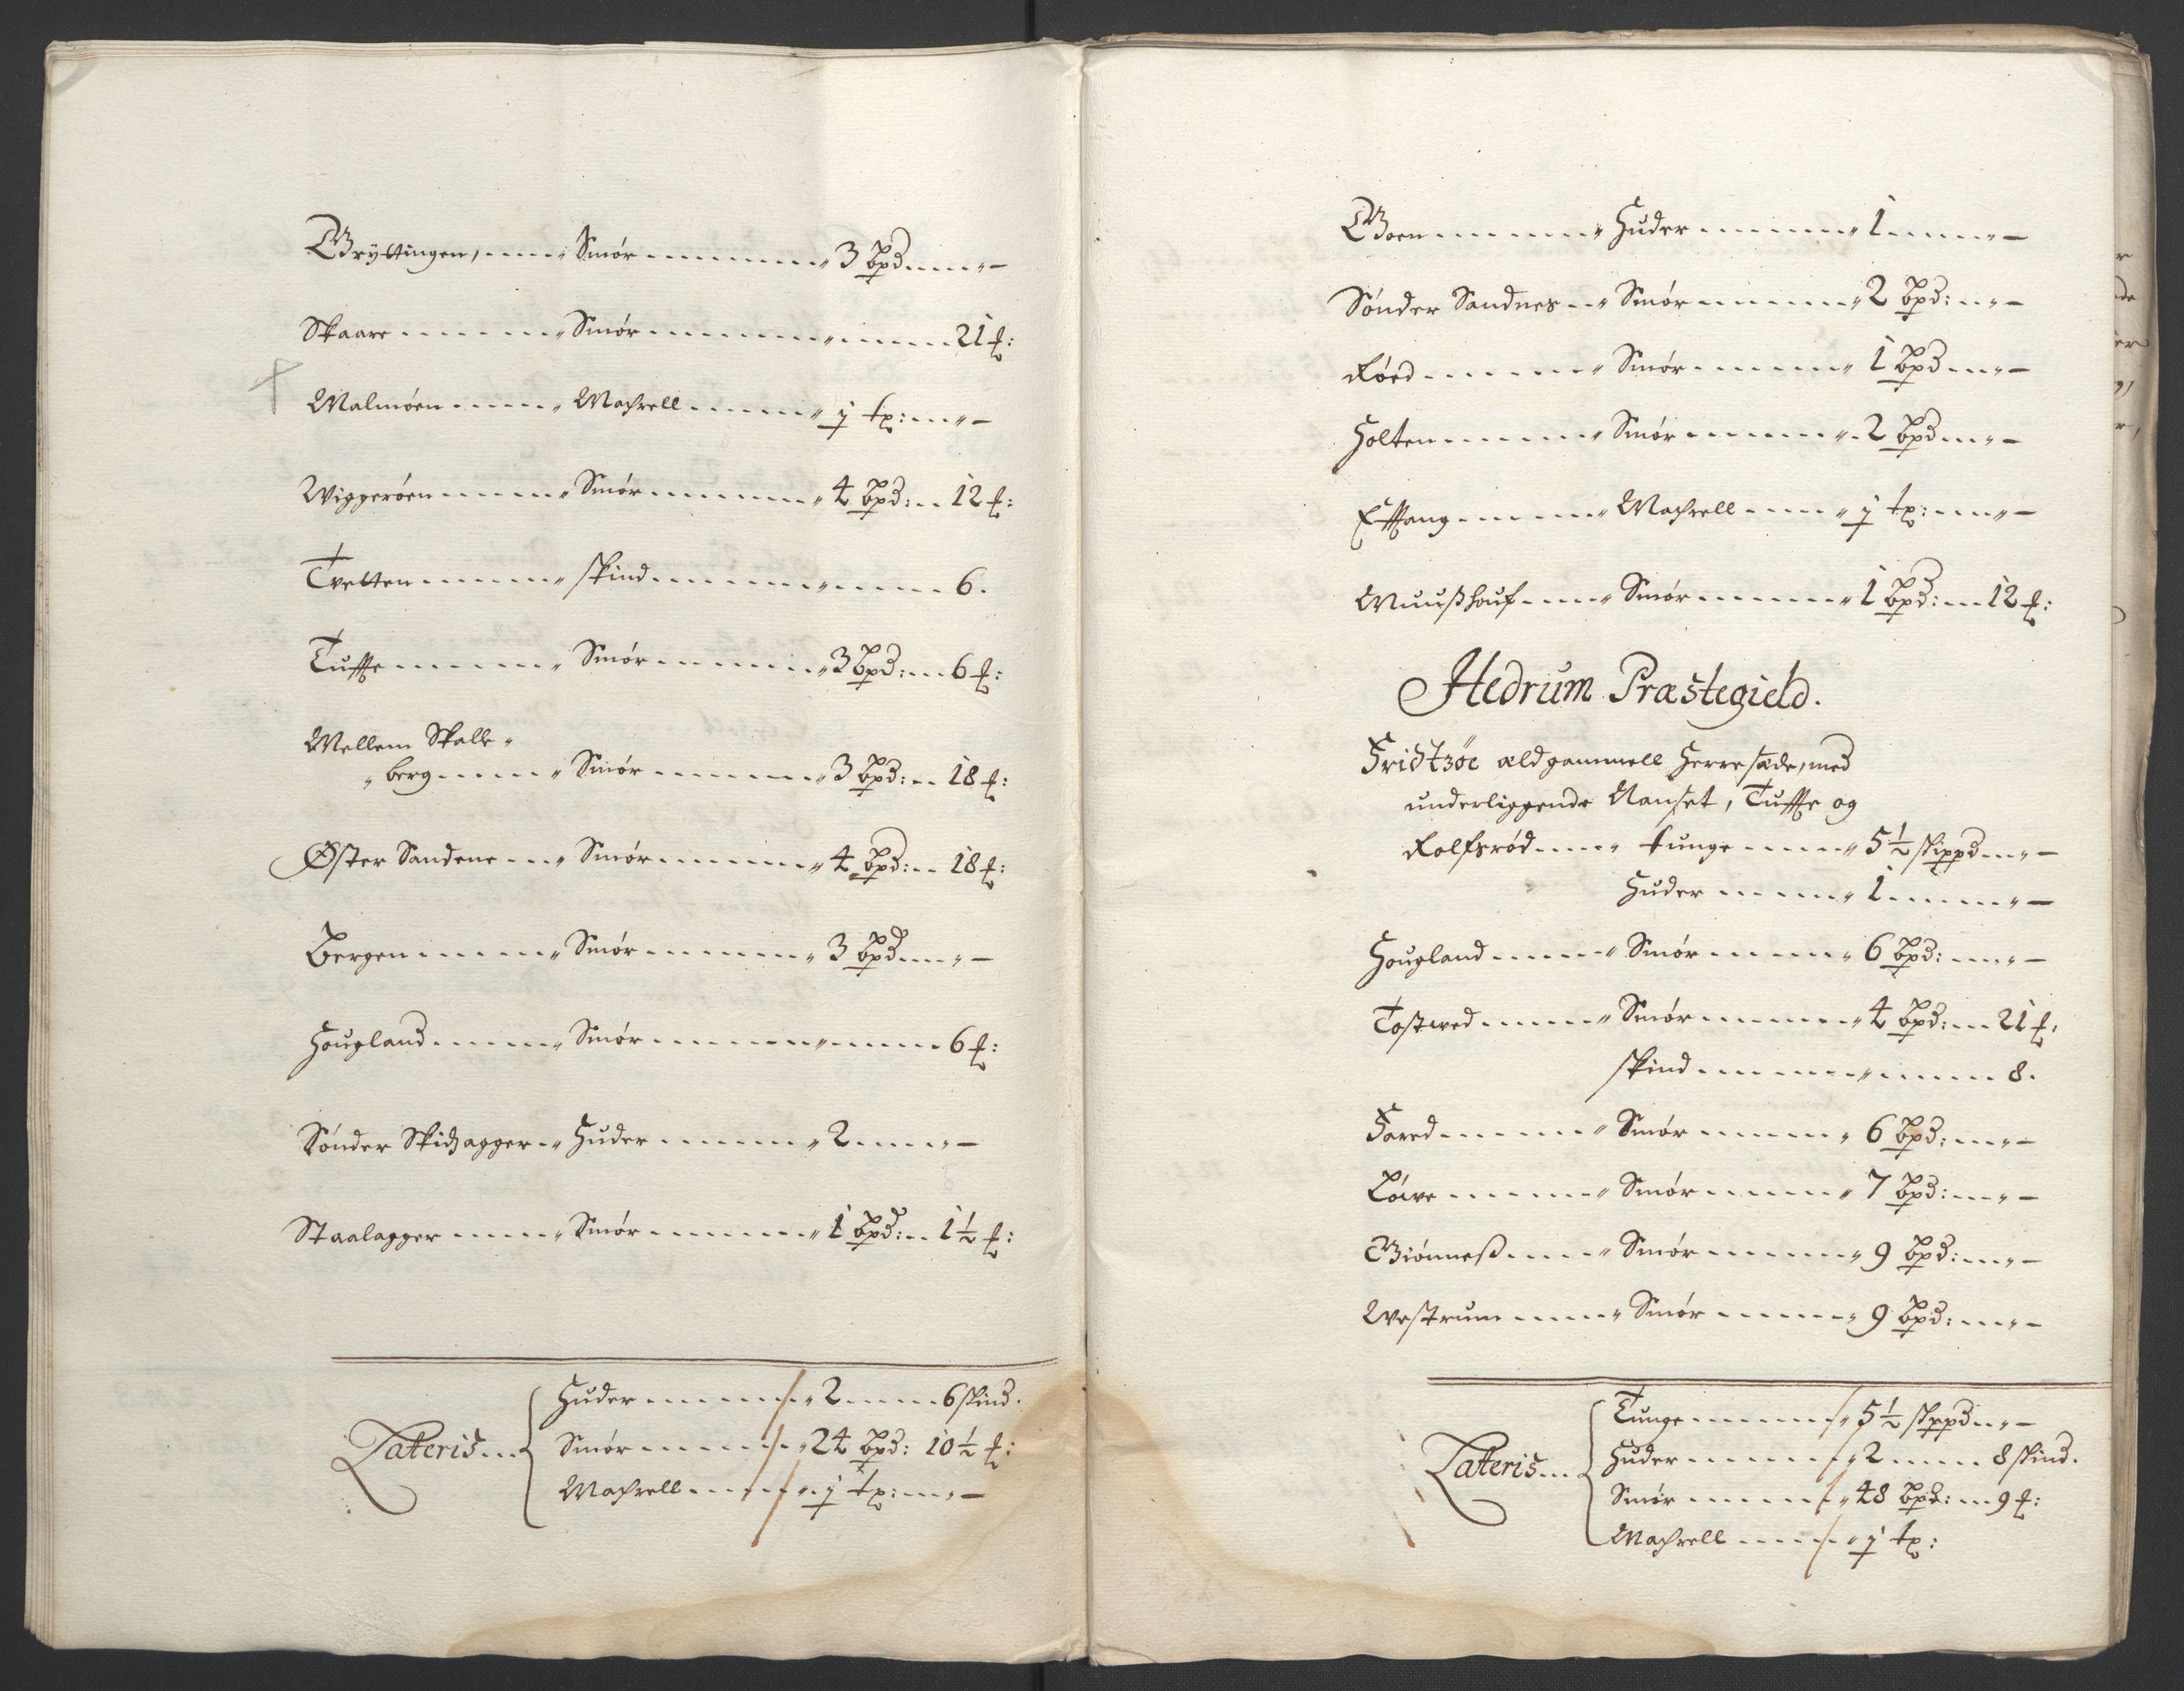 Bryttingen, Smör 3 Bpd
Skaare Smör 21 £:
Malmöen Machrell j tr:
Wiggeröen Smör 4 Bpd: 12 £:
Tvetten skind 6.
Tuffte Smör 3 Bpd: 6 £:
Mellem Skalle
berg Smör 3 Bpd: 18 £:
Øster Sandene Smör 4 Bpd: 18 £:
Bergen Smör 3 Bpd
Hougland Smör 6 £:
Sönder Skidzagger Huder 2
Staalagger Smör 1 Bpd: 1½ £:
Lateris
Huder 2 6 skind.
Smör 24 Bpd: 10½ £:
Machrell j tr:
Boen Huder 1
Sönder Sandnes Smör 2 Bpd:
Röed Smör 1 Bpd
Holten Smör 2 Bpd
Efftang Machrell j tr:
Muusshouf Smör 1 Bpd: 12 £:
Hedrum Præstegield.
Fridtzöe ældgammell Herresæde, med
underliggende Nanset, Tuffte og
Rolfsröd tunge 5½ skippd
Huder 1
Hougland Smör 6 Bpd:
Tostwed Smör 4 Bpd: 21 £.
skind 8.
Fared Smör 6 Bpd:
Löwe Smör 7 Bpd:
Biönness Smör 9 Bpd:
Westrum Smör 9 Bpd:
Lateris
Tunge 5½ skppd
Huder 2 8 skind.
Smör 48 Bpd: 9 £:
Machrell j tr: